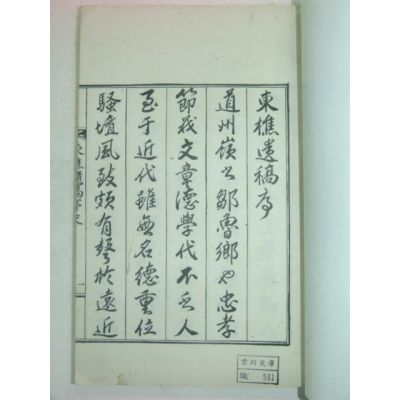 東樵遺稿序
道州嶺之鄒魯鄉也忠孝
節義文章德學代不乏人
至于近代雖無名德重位
騷壇風致頗有聲於遠近
東樵遺稿序文
一
雲川文庫
541